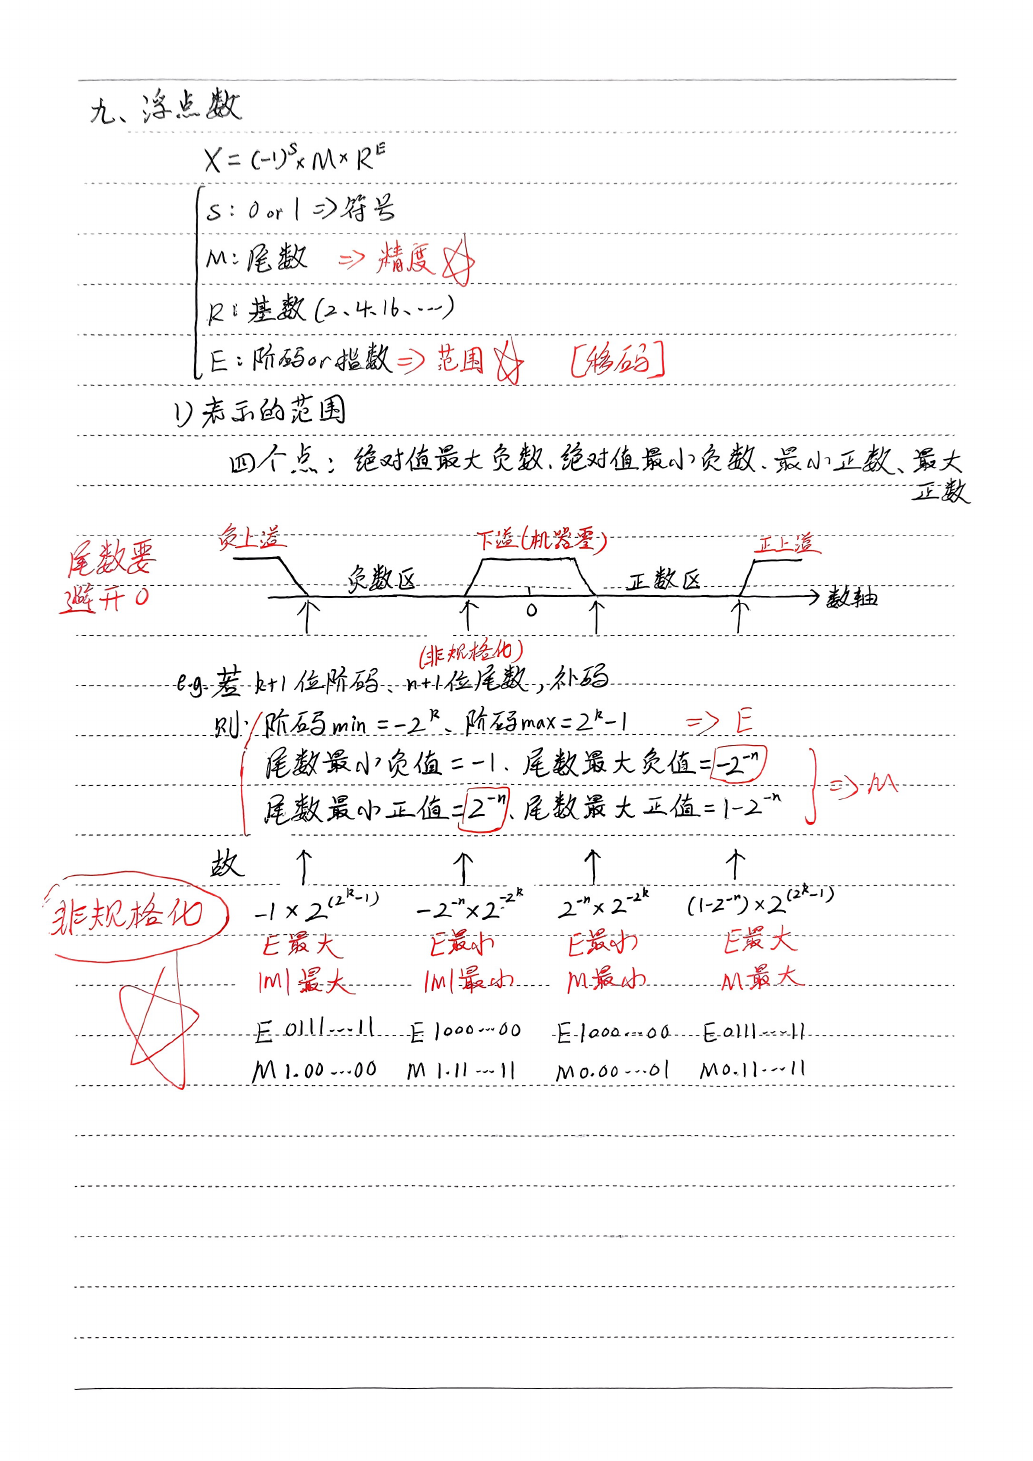 九、浮点数
X = (-1)^S × M × R^E
S: 0 or 1 => 符号
M: 尾数 => 精度 ☆
R: 基数 (2、4、16、…)
E: 阶码 or 指数 => 范围 ☆ [移码]
1) 表示的范围
四个点: 绝对值最大负数、绝对值最小负数、最小正数、最大
正数
负上溢 下溢(机器零) 正上溢
尾数要
避开0
负数区 0 正数区 数轴
(非规格化)
e.g. 若 k+1 位阶码、n+1位尾数, 补码
则: 阶码min = -2^k、阶码max = 2^k-1 => E
尾数最小负值 = -1、尾数最大负值 = -2^-n
尾数最小正值 = 2^-n、尾数最大正值 = 1-2^-n => M
故 ↑ ↑ ↑ ↑
非规格化 ☆
-1 × 2^(2^k-1) -2^-n × 2^-2^k 2^-n × 2^-2^k (1-2^-n) × 2^(2^k-1)
E最大 E最小 E最小 E最大
|M|最大 |M|最小 M最小 M最大
E 0111…11 E 1000…00 E 1000…00 E 0111…11
M 1.00…00 M 1.11…11 M 0.00…01 M 0.11…11